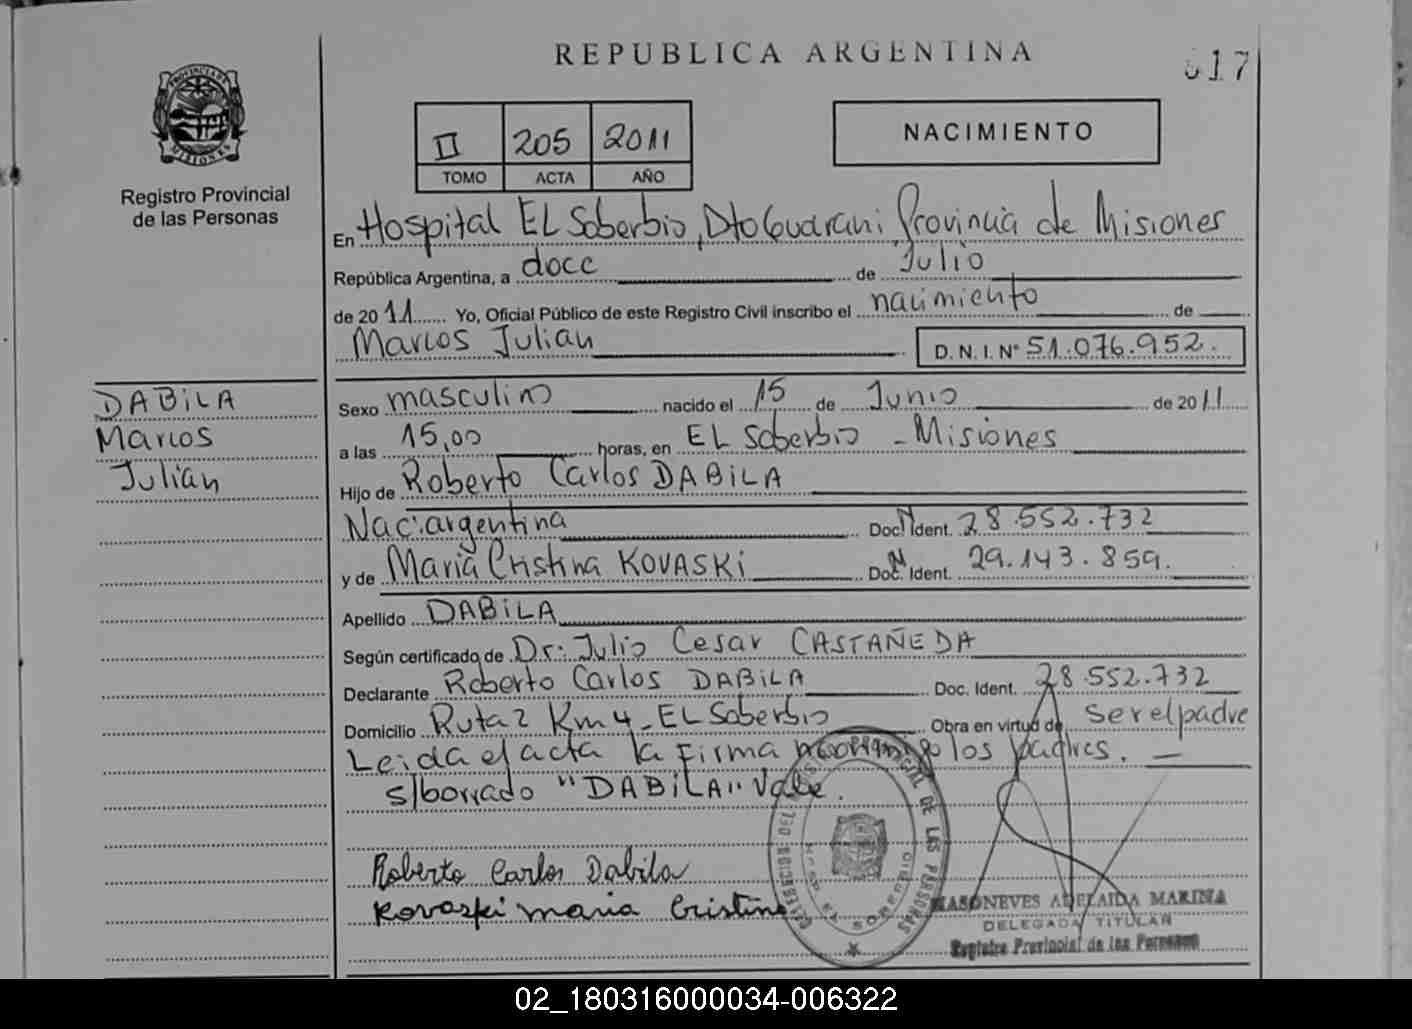 REPUBLICA ARGENTINA
617
PROVINCIA DE
MISIONES
Registro Provincial
de las Personas
II 205 2011
TOMO ACTA AÑO
NACIMIENTO
En Hospital EL Soberbio, Dto Guarani Provincia de Misiones
República Argentina, a doce de Julio
de 2011 Yo, Oficial Público de este Registro Civil inscribo el nacimiento de
Marcos Julian D.N.I. Nº 51.076.952.
DABiLA
Marcos
Julián
Sexo masculino nacido el 15 de Junio de 2011
a las 15,00 horas, en EL Soberbio - Misiones
Hijo de Roberto Carlos DABiLA
Nac. argentina Doc. Ident. 28.552.732
y de Maria Cristina KOVASKi Doc. Ident. 29.143.859.
Apellido DABiLA
Según certificado de Dr: Julio Cesar CASTAÑEDA
Declarante Roberto Carlos DABiLA Doc. Ident. 28.552.732
Domicilio Ruta 2 Km 4 - EL Soberbio Obra en virtud de ser el padre
Leida el acta la firma los padres.
s/borrado "DABiLA" Vale.
Roberto Carlos Dabila
Kovaski maria Cristina
MASONEVES ADELAIDA MARINA
DELEGADA TITULAR
Registro Provincial de las Personas
02_180316000034-006322